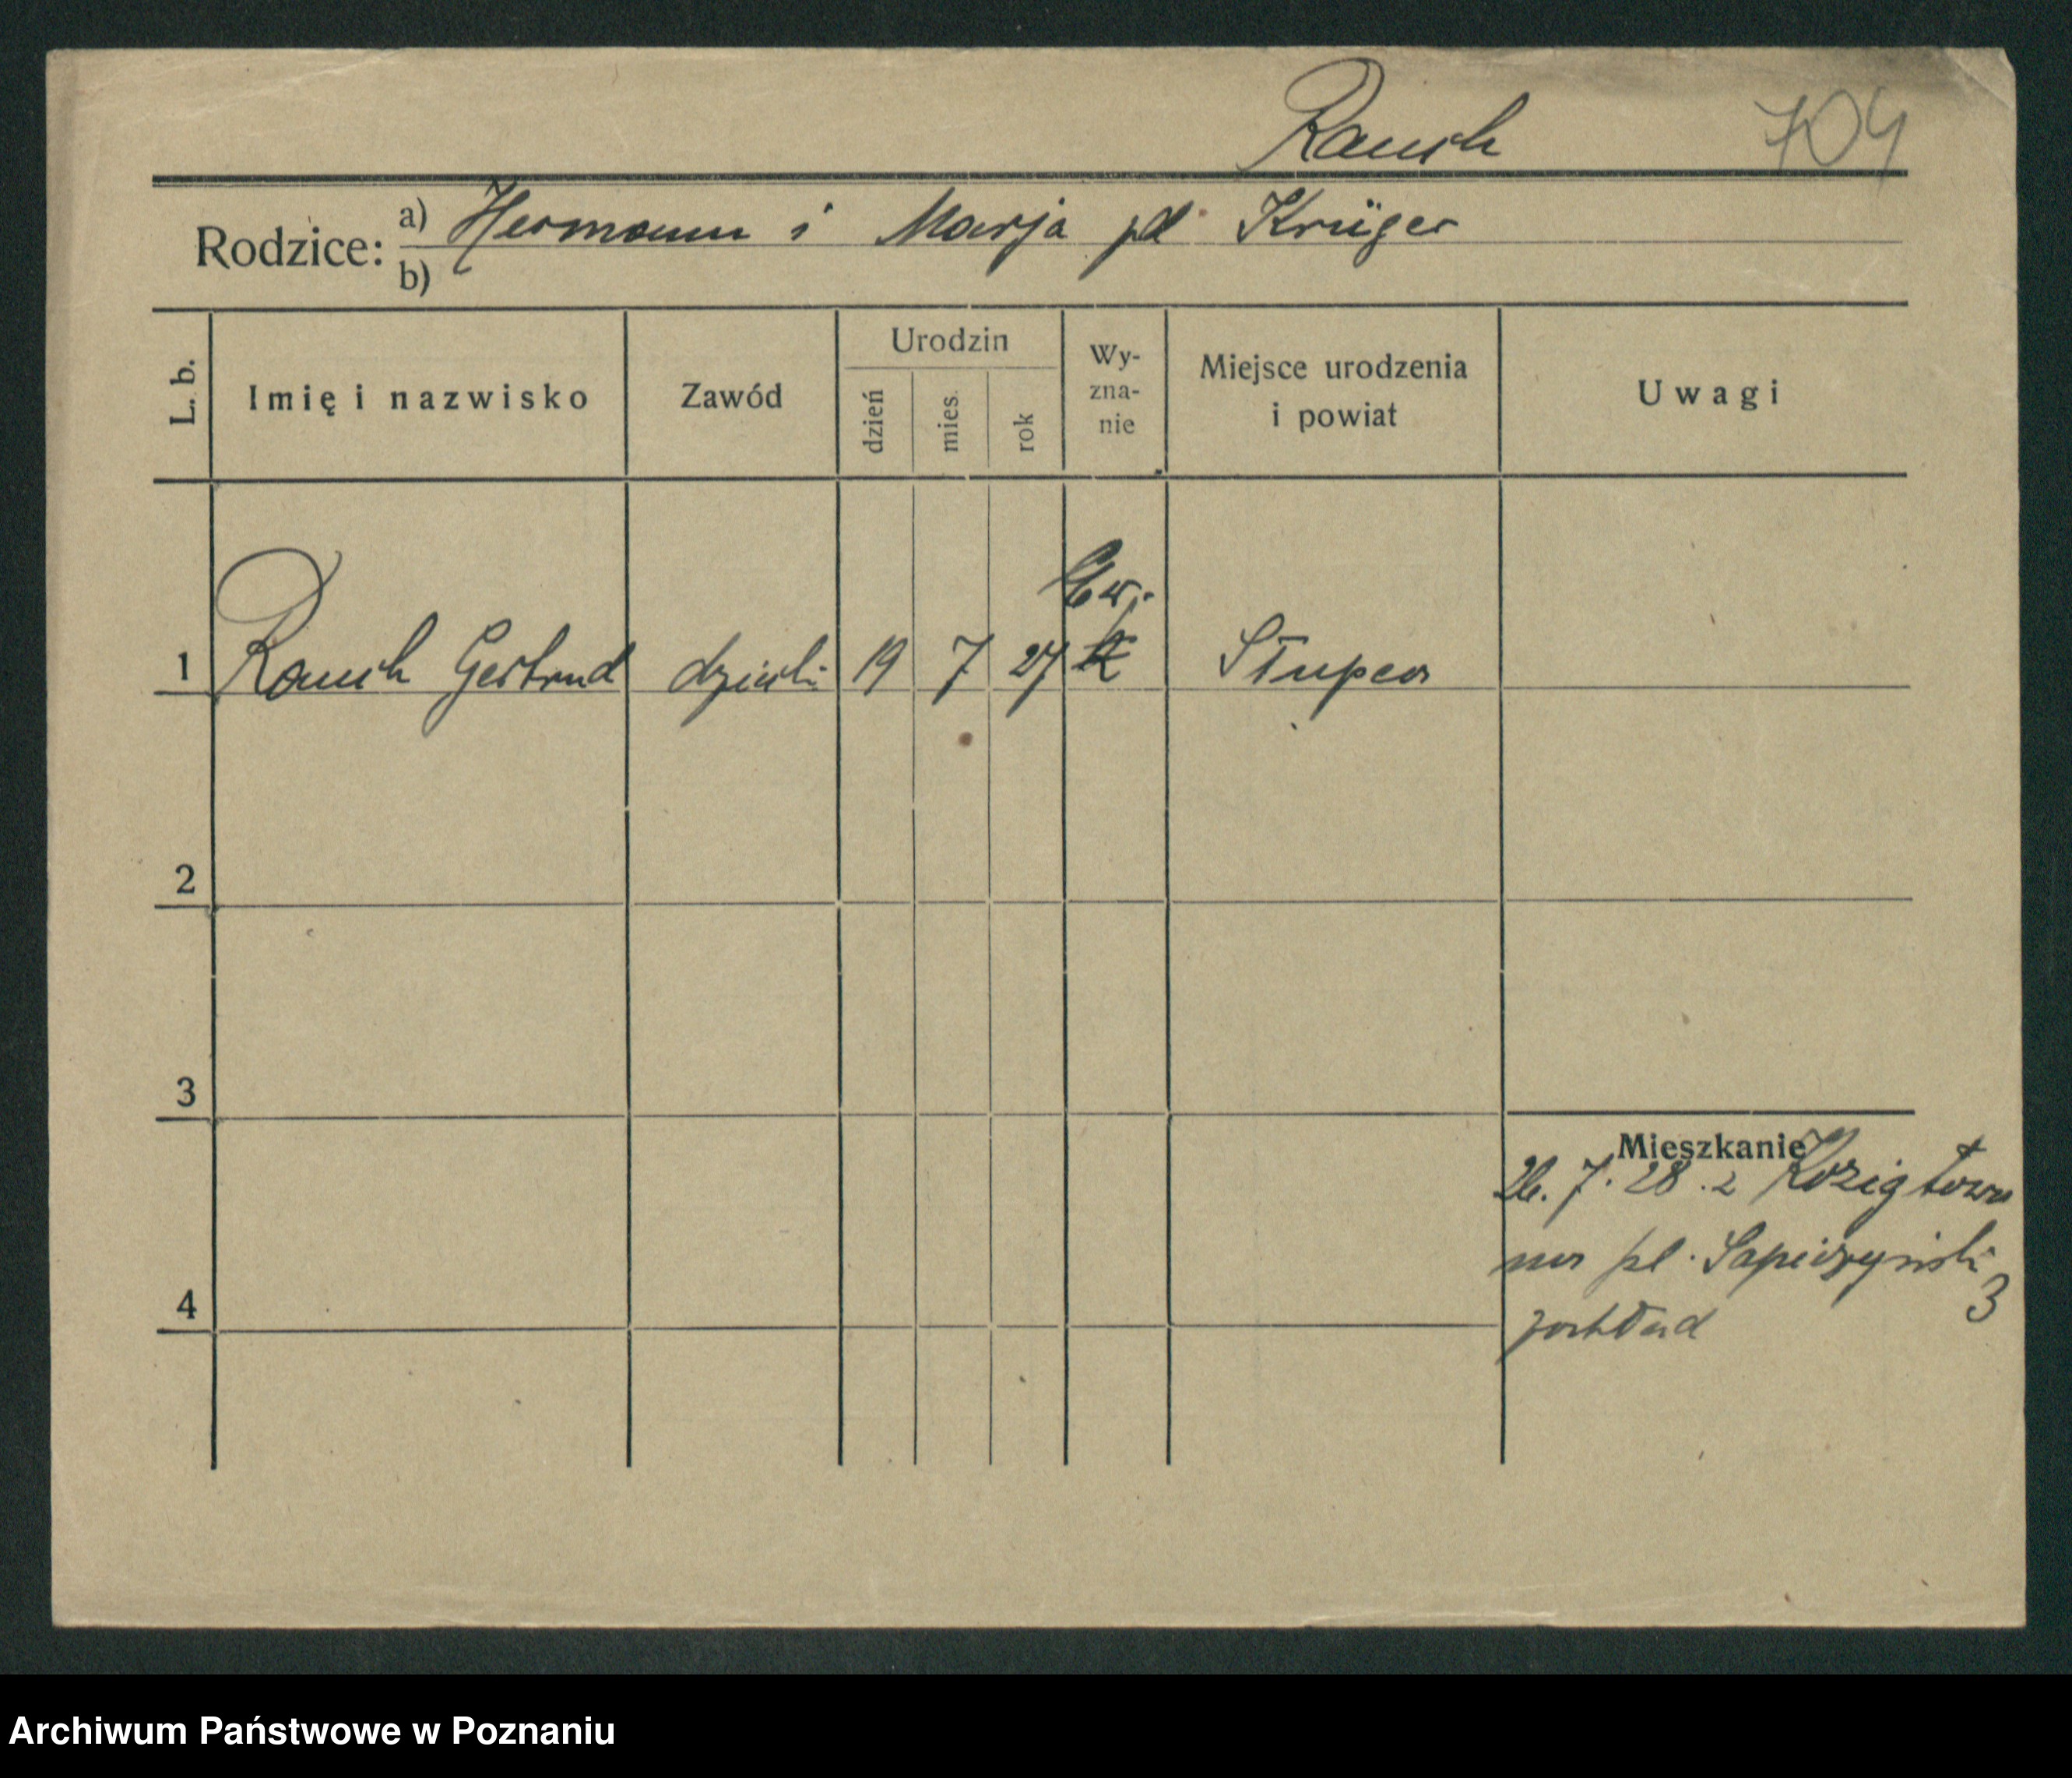 Rauch 704
Rodzice: a) Hermann i Marja pd Krüger
b)
L. b. Imię i nazwisko Zawód Urodzin dzień mies. rok Wy-zna-nie Miejsce urodzenia i powiat Uwagi
Ew.
1 Rauch Gertrud 19 7 27 k Słupca
2
3
4
Mieszkanie
26. 7. 28. z
na pl. Sapieżyński 3
zakład
Archiwum Państwowe w Poznaniu